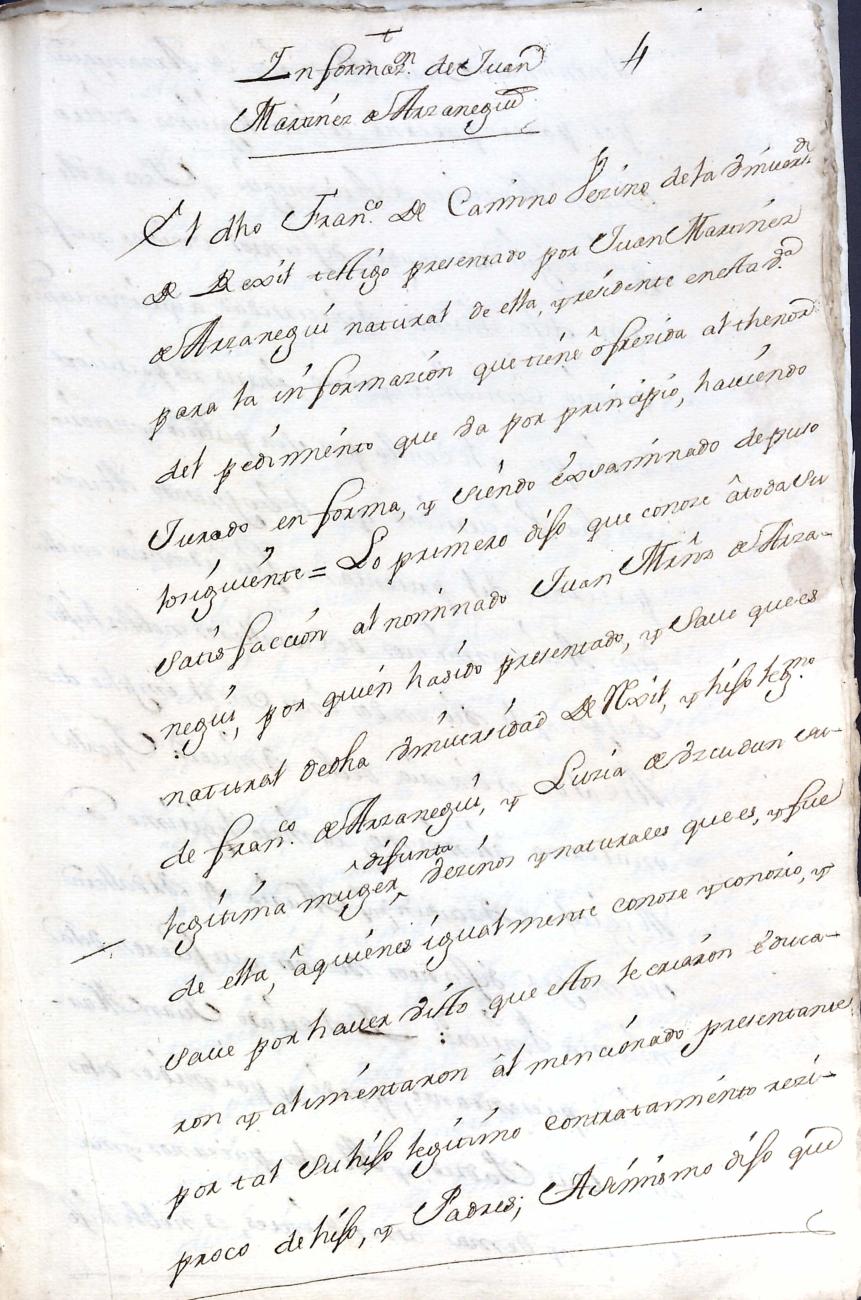 +
Informaz.on de Juan 4
Martinez de Arranegui
El dho Fran.co de Camino Vezino de la Vniversd.
de Rexil testigo presentado por Juan Martinez
de Arranegui natural de ella, y residente en esta V.a
para la informazion que tiene ôfrezida al thenor
del pedimento que da por prinzipio, haviendo
Jurado en forma, y siendo êxsaminado depuso
losiguiente = Lo primero dijo que conoze âtoda su
satisfaccion al nominado Juan Mrñz de Arra-
negui, por quien hasido presentado, y save que es
natural dedha Vniversidad de Rexil, y hijo leg.mo
de fran.co de Arranegui, y Luzia de Vzcudun su
legitima muger difunta vezinos y naturales que es, y fue
de ella, âquienes igualmente conoze y conozio, y
save por haver visto que estos le criaron êduca-
ron y alimentaron âl mencionado presentante
por tal su hijo legitimo contratamiento rezi-
proco de hijo, y Padres; Asimismo dijo que